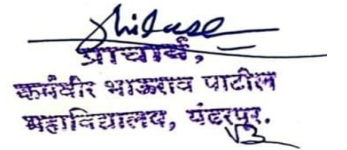 प्राचार्य,
कर्मवीर भाऊराव पाटील
महाविद्यालय, पंढरपूर.